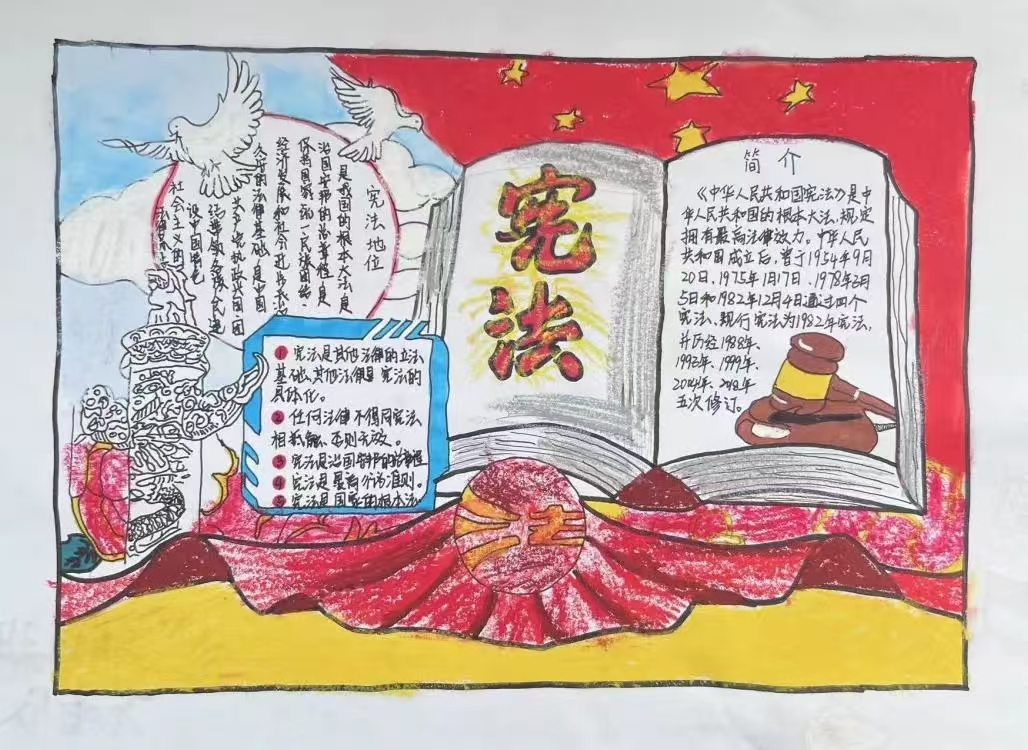 宪法地位
是我国的根本大法,是
治国安邦的总章程,是
保持国家统一民族团结
经济发展和社会进步长治
久安的法律基础,是中国
共产党执政兴国团
结带领各族人民建
设中国特色
社会主义的
① 宪法是其他法律的立法
基础,其他法律是宪法的
具体化。
② 任何法律不得同宪法
相抵触、否则无效。
③ 宪法是治国安邦的总章程
④ 宪法是最高行为准则。
⑤ 宪法是国家的根本法
宪
法
简 介
《中华人民共和国宪法》是中
华人民共和国的根本大法,规定
拥有最高法律效力。中华人民
共和国成立后,曾于1954年9月
20日、1975年1月17日、1978年3月
5日和1982年12月4日通过四个
宪法、现行宪法为1982年宪法,
并历经1988年、
1993年、1999年、
2004年、2018年
五次修订。
法